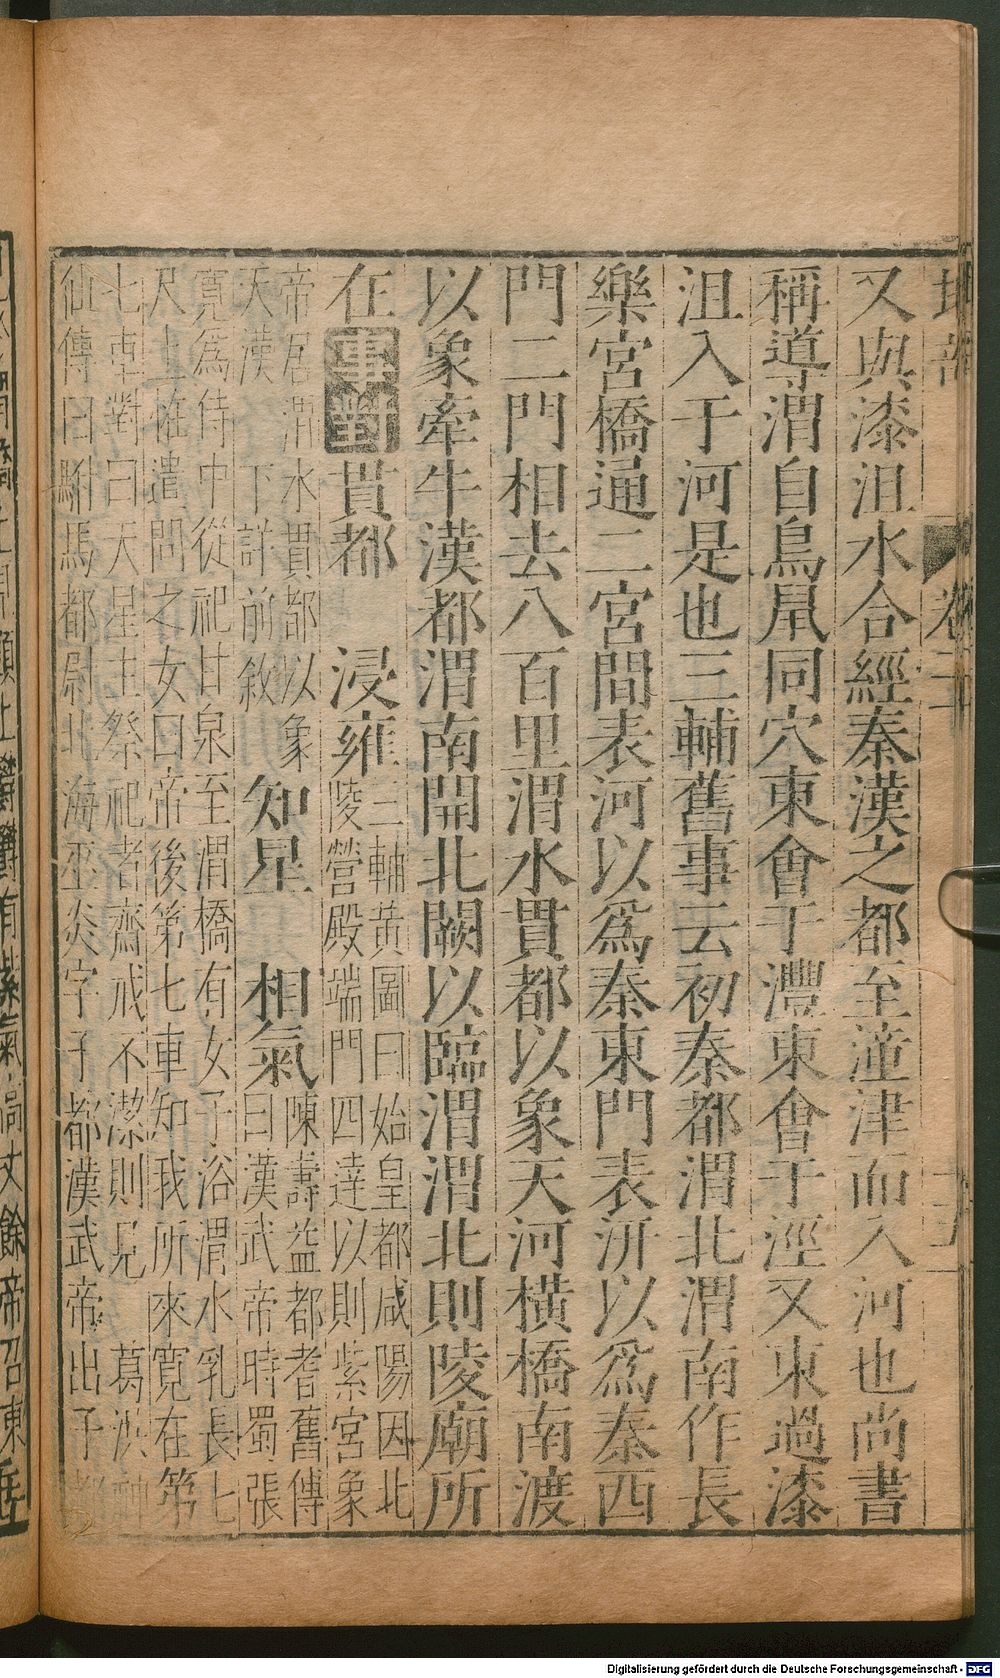 又與漆沮水合經秦漢之都至潼津而入河也尚書
稱道渭自鳥鼠同穴東會于灃東會于涇又東過漆
沮入于河是也三輔舊事云初秦都渭北渭南作長
樂宮橋通二宮間表河以爲秦東門表汧以爲秦西
門二門相去八百里渭水貫都以象天河橫橋南渡
以象牽牛漢都渭南開北闕以臨渭渭北則陵廟所
在事對貫都 浸雍
三輔黃圖曰始皇都咸陽因北
陵營殿端門四達以則紫宮象
帝居渭水貫都以象
天漢下詳前敘
知星 相氣
陳壽益都耆舊傳
曰漢武帝時蜀張
寬爲侍中從祀甘泉至渭橋有女子浴渭水乳長七
尺上怪遣問之女曰帝後第七車知我所來寬在第
七車對曰天星主祭祀者齋戒不潔則見 葛洪神
仙傳曰駙馬都尉北海巫炎字子都漢武帝出子都
有紫氣高丈餘帝召東
卷
Digitalisierung gefördert durch die Deutsche Forschungsgemeinschaft - DFG